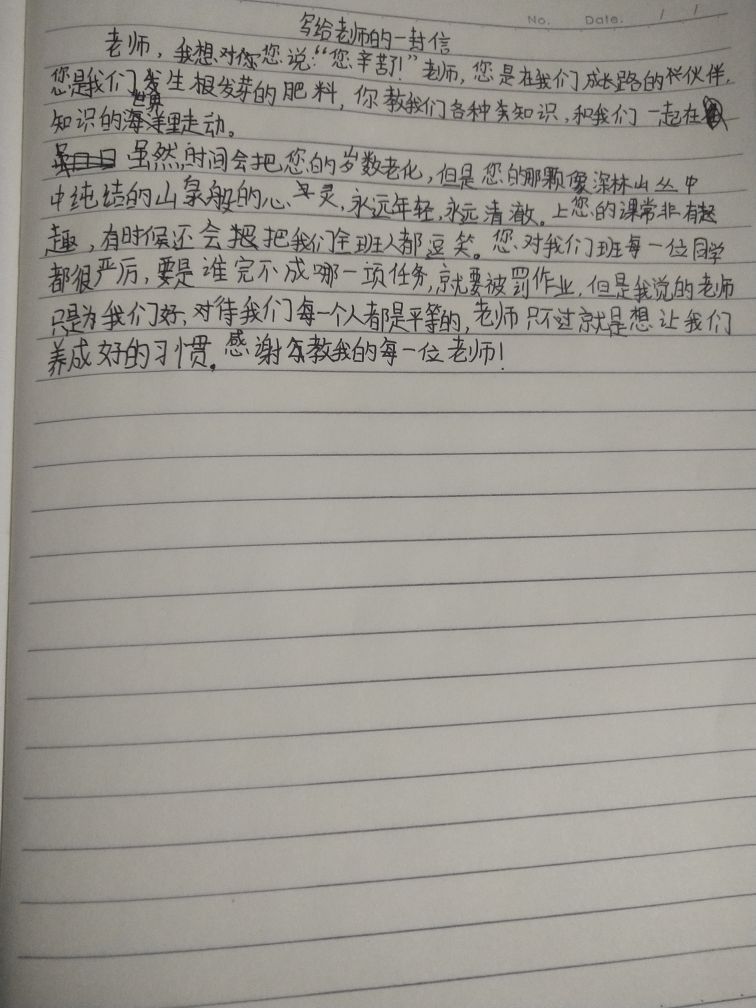 No. Date. / /
写给老师的一封信
老师，我想对你您说："您辛苦了！"老师，您是在我们成长路的伙伴，
您是我们发生根发芽的肥料，你教我们各种类知识，和我们一起在
世界
知识的海洋里走动。
虽然时间会把您的岁数老化，但是您的那颗像深林山丛中
中纯结的山泉般的心灵，永远年轻，永远清澈。上您的课常非有趣
趣，有时候还会把我们全班人都逗笑。您对我们班每一位同学
都很严厉，要是谁完不成哪一项任务，就要被罚作业，但是我说的老师
只是为我们好，对待我们每一个人都是平等的，老师只不过就是想让我们
养成好的习惯。感谢教我的每一位老师！